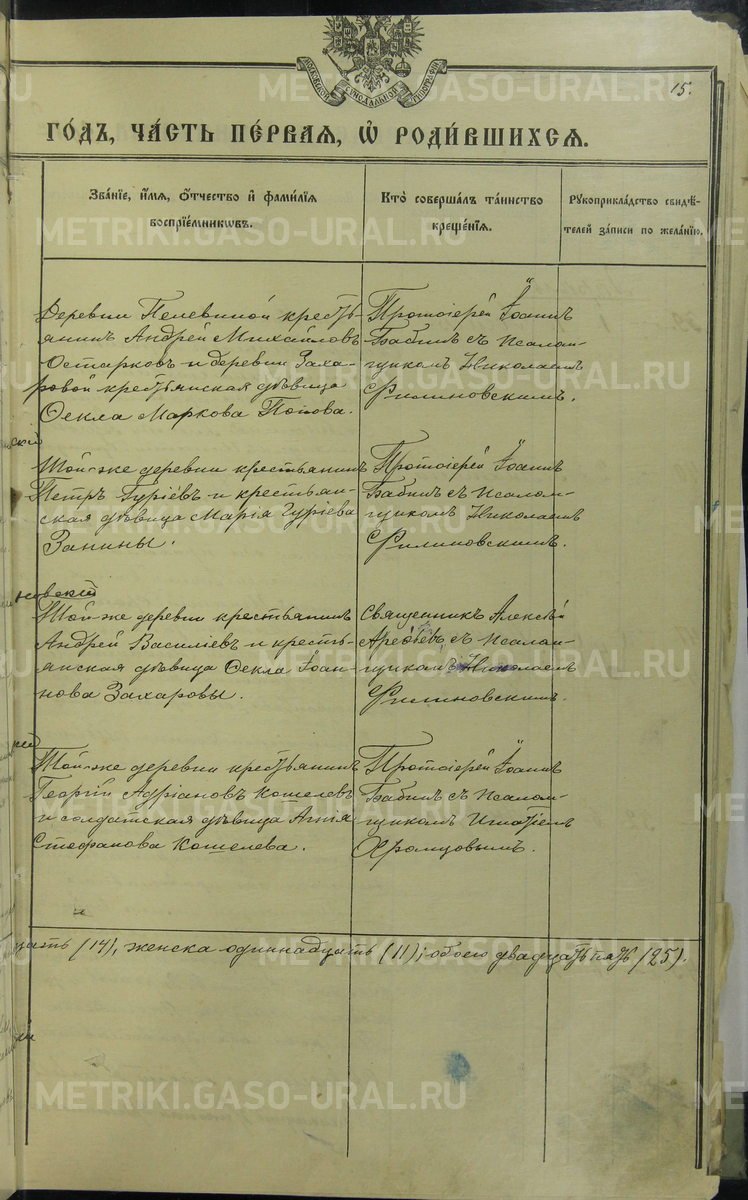 METRIKI.GASO-URAL.RU
МОСКОВСКОЙ СѴНОДАЛЬНОЙ ТИПОГРАФІИ
15.
ГО́ДЪ, ЧА́СТЬ ПЕ́РВАЯ, Ѡ҆ РОДИ́ВШИХСЯ.
Зва́нїе, и҆́мя, ѻ҆́тчество и҆ фами́лїя
воспрїе́мникѡвъ.
Кто̀ соверша́лъ та́инство
креще́нїя.
Рꙋкоприкла́дство свидѣ́-
телей за́писи по жела́нїю.
Деревни Пелевиной кресть-
янинъ Андрей Михайловъ
Остарковъ и деревни Заха-
ровой крестьянская дѣвица
Ѳекла Маркова Попова.
Протоіерей Іоаннъ
Бабинъ съ Псалом-
щикомъ Николаемъ
Филиновскимъ.
METRIKI.GASO-URAL.RU
Той-же деревни крестьянинъ
Петръ Гуріевъ и крестьян-
ская дѣвица Марія Гуріева
Занины.
Протоіерей Іоаннъ
Бабинъ съ Псалом-
щикомъ Николаемъ
Филиновскимъ.
METRIKI.GASO-URAL.RU
новскій
Той-же деревни крестьянинъ
Андрей Василіевъ и кресть-
янская дѣвица Ѳекла Іоан-
нова Захаровы.
Священникъ Алексѣй
Арефьевъ съ Псалом-
щикомъ Николаемъ
Филиновскимъ.
METRIKI.GASO-URAL.RU
Той-же деревни крестьянинъ
Георгій Адріановъ Кошелевъ
и солдатская дѣвица Агнія
Стефанова Кошелева.
Протоіерей Іоаннъ
Бабинъ съ Псалом-
щикомъ Игнатіемъ
Хромцовымъ.
METRIKI.GASO-URAL.RU
цать (14), женска одиннадцать (11); обоего двадцать пять (25).
METRIKI.GASO-URAL.RU